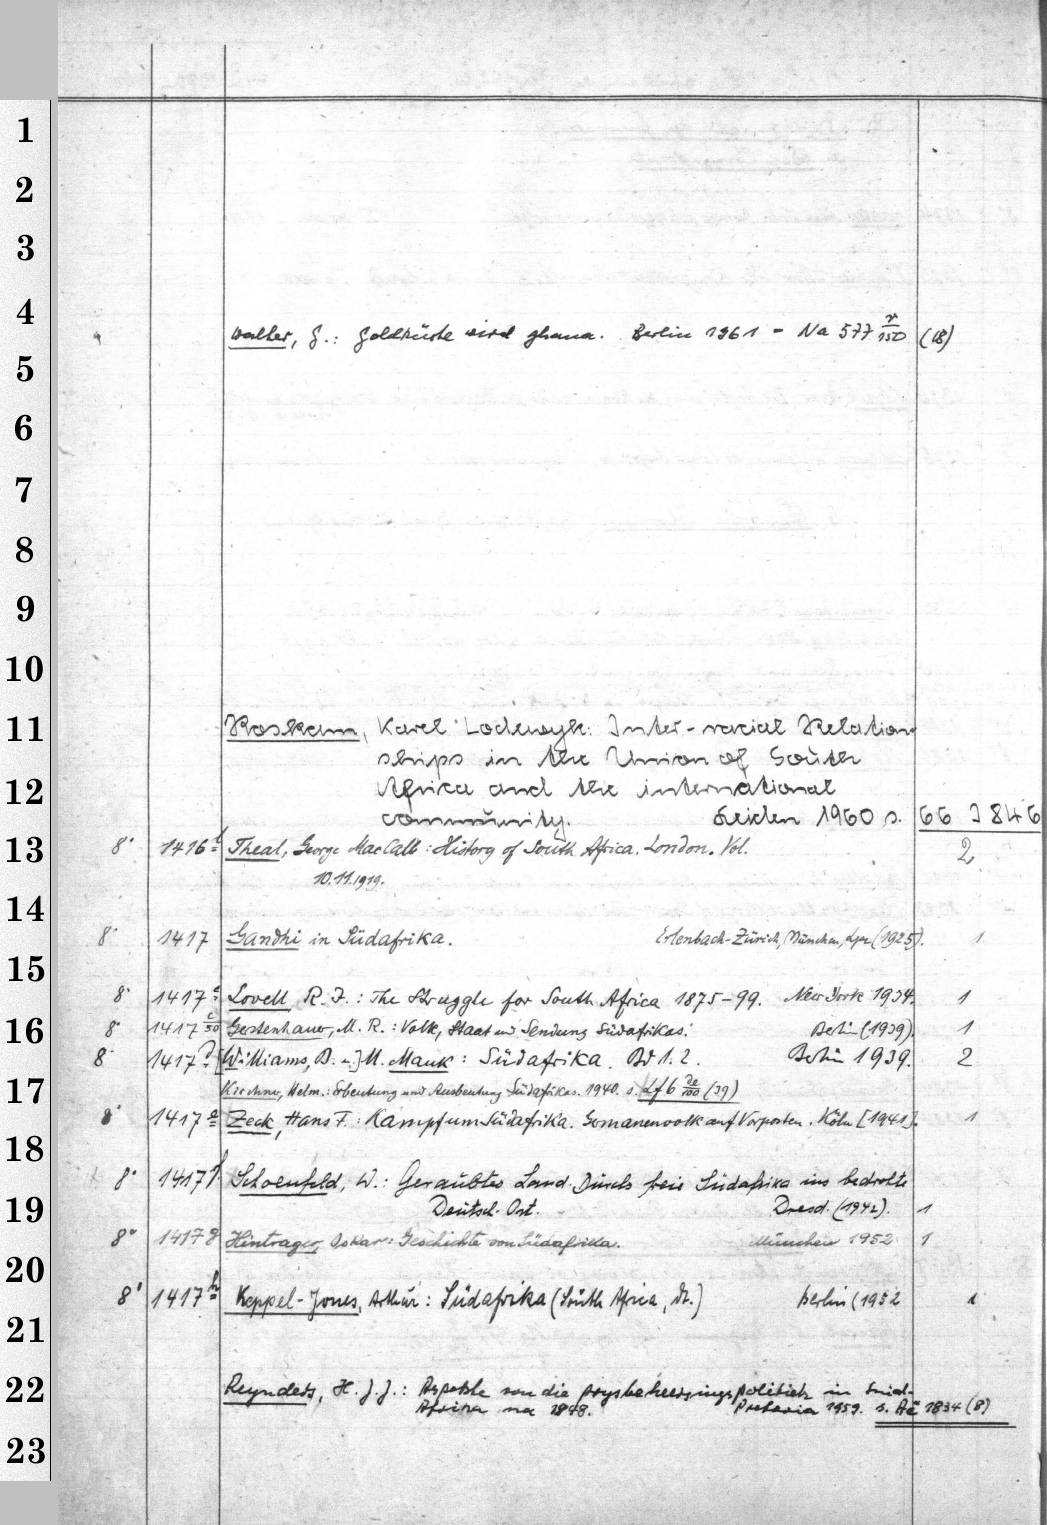 1
2
3
4
Walter, G.: Goldküste wird Ghana. Berlin 1961 = Na 577 r/150 (18)
5
6
7
8
9
10
11 Roskam, Karel Lodewyk: Inter-racial Relation
ships in the Union of South
12 Africa and the international
community. Leiden 1960 s. 66 J 846
13 8° 1416 f Theal, George MacCall: History of South Africa. London. Vol. 2
10.11.1919.
14
8° 1417 Gandhi in Südafrika. Erlenbach-Zürich, München, Lpz (1925). 1
15
8° 1417 a Lovell, R. I.: The Struggle for South Africa 1875-99. New York 1934. 1
16 8° 1417 c/50 Gerstenhauer, M. R.: Volk, Staat und Sendung Südafrikas. Berlin (1939). 1
8° 1417 [Williams, B. u.] M. Mauk: Südafrika. Bd 1.2. Berlin 1939. 2
17 Kirchner, Helm.: Erbeutung und Ausbeutung Südafrikas. 1940. s. Lf 6 /100 (39)
8° 1417 e Zeck, Hans F.: Kampf um Südafrika. Germanenvolk auf Vorposten. Köln [1941]. 1
18
8° 1417 f Schoenfeld, W.: Geraubtes Land. Durch freie Südafrika ins bedrohte
19 Deutsch-Ost. Dresd. (1942). 1
8° 1417 g Hintrager, Oskar: Geschichte von Südafrika. München 1952 1
20
8° 1417 h Keppel-Jones, Arthur: Südafrika (South Africa, dt.) Berlin (1952 1
21
22 Reynders, H. J. J.: Aspekte van die prysbeheersingspolitiek in Suid-
Afrika na 1948. Pretoria 1959. s. Ae 1834 (8)
23